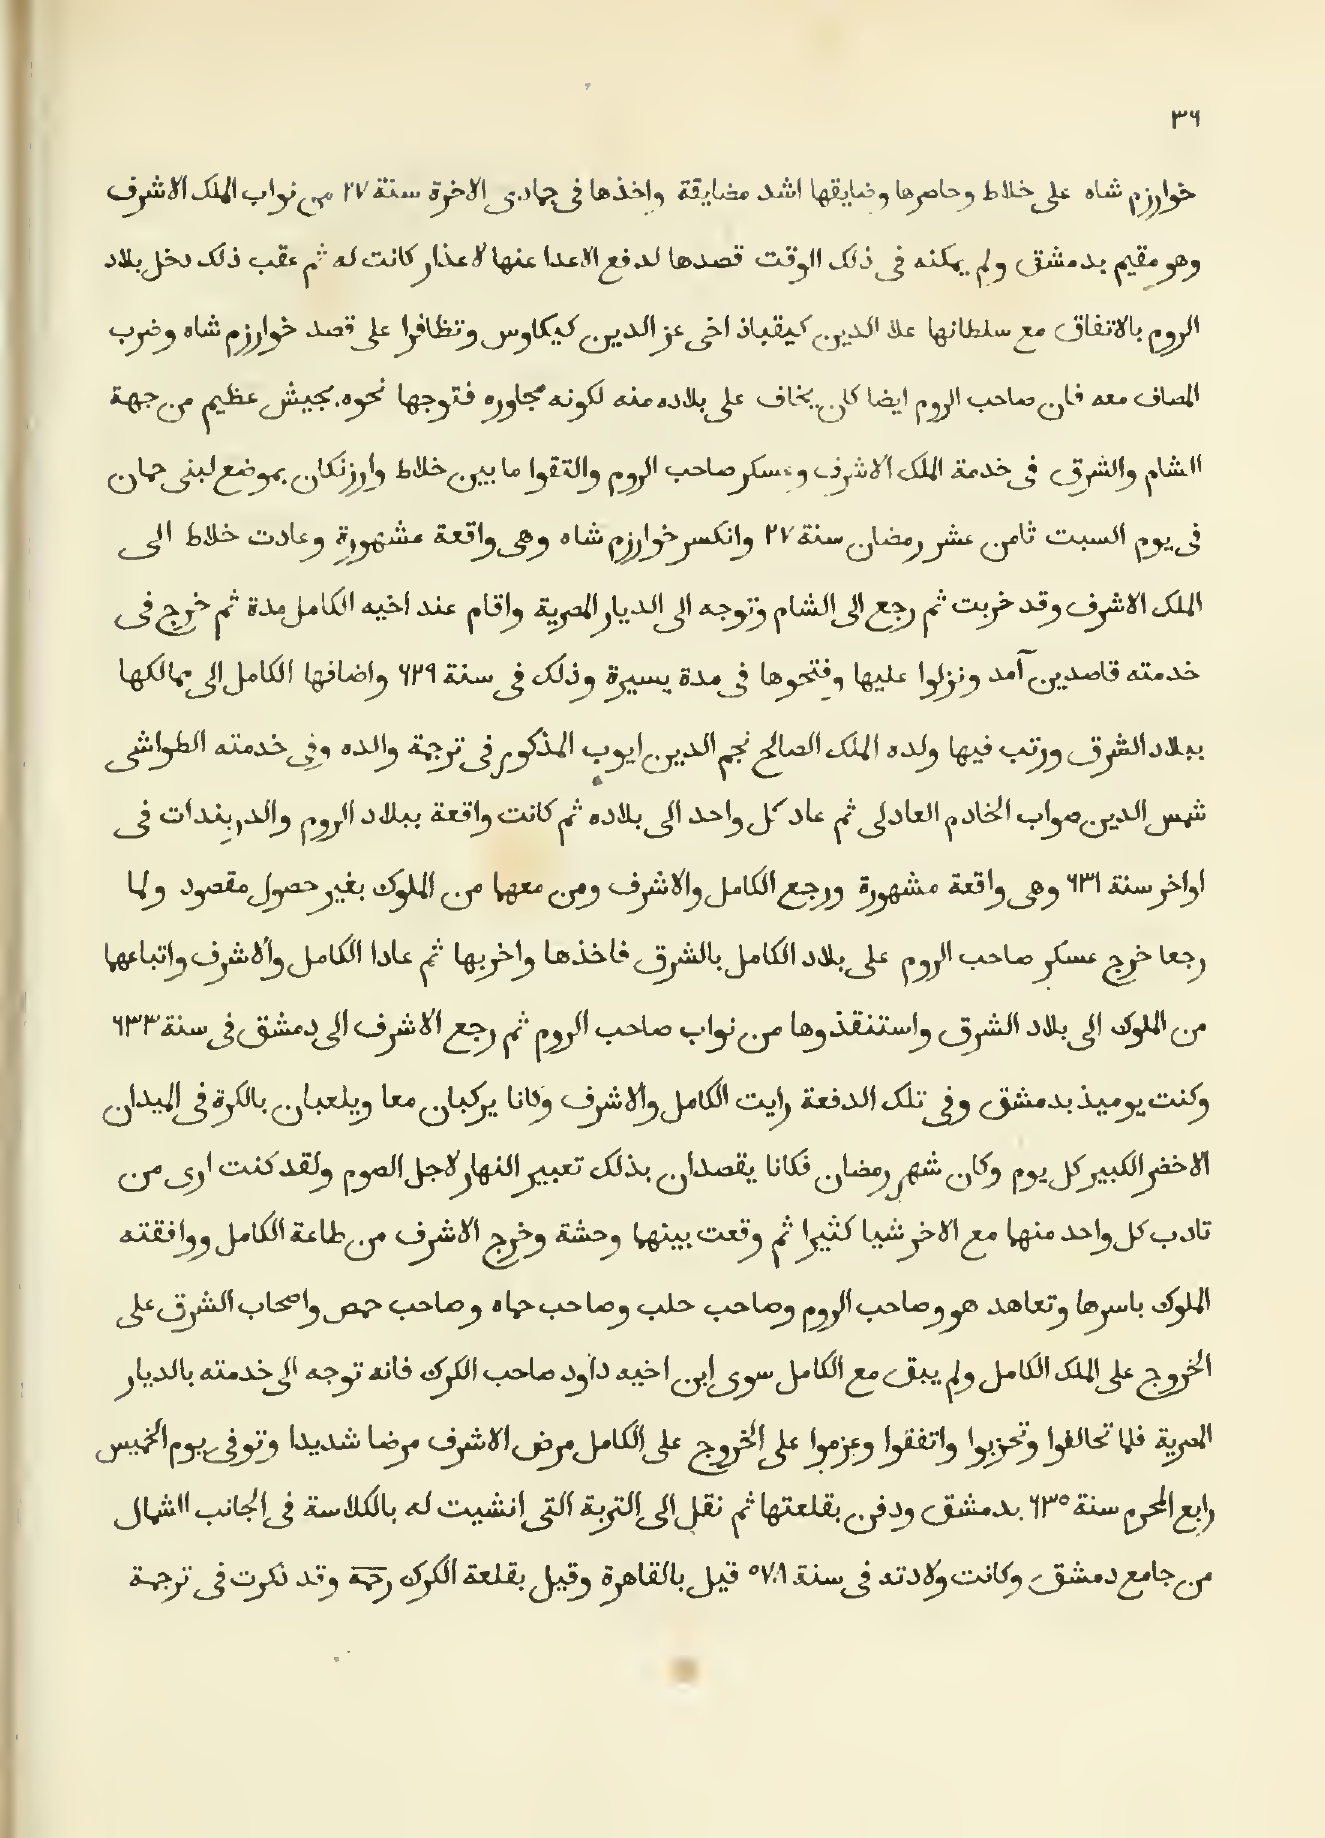 ٣٦
خوارزم شاه على خلاط وحاصرها وضايقها اشد مضايقة واخذها فى جمادى الاخرة سنة ٢٧ من نواب الملك الاشرف
وهو مقيم بدمشق ولم يمكنه فى ذلك الوقت قصدها لدفع الاعدا عنها لاعذار كانت له ثم عقب ذلك دخل بلاد
الروم بالاتفاق مع سلطانها علا الدين كيقباذ اخى عز الدين كيكاوس وتظافرا على قصد خوارزم شاه وضرب
المصاف معه فان صاحب الروم ايضا كان يخاف على بلاده منه لكونه مجاوره فتوجها نحوه بجيش عظيم من جهة
الشام والشرق فى خدمة الملك الاشرف وعسكر صاحب الروم والتقوا ما بين خلاط وارزنكان بموضع لبنى جمان
فى يوم السبت ثامن عشر رمضان سنة ٢٧ وانكسر خوارزم شاه وهى واقعة مشهورة وعادت خلاط الى
الملك الاشرف وقد خربت ثم رجع الى الشام وتوجه الى الديار المصرية واقام عند اخيه الكامل مدة ثم خرج فى
خدمته قاصدين آمد ونزلوا عليها وفتحوها فى مدة يسيرة وذلك فى سنة ٦٢٩ واضافها الكامل الى ممالكها
ببلاد الشرق ورتب فيها ولده الملك الصالح نجم الدين ايوب المذكور فى ترجمة والده وفى خدمته الطواشى
شمس الدين صواب الخادم العادلى ثم عاد كل واحد الى بلاده ثم كانت واقعة ببلاد الروم والدربندات فى
اواخر سنة ٦٣١ وهى واقعة مشهورة ورجع الكامل والاشرف ومن معهما من الملوك بغير حصول مقصود ولما
رجعا خرج عسكر صاحب الروم على بلاد الكامل بالشرق فاخذها واخربها ثم عادا الكامل والاشرف واتباعهما
من الملوك الى بلاد الشرق واستنقذوها من نواب صاحب الروم ثم رجع الاشرف الى دمشق فى سنة ٦٣٣
وكنت يوميذ بدمشق وفى تلك الدفعة رايت الكامل والاشرف وكانا يركبان معا ويلعبان بالكرة فى الميدان
الاخضر الكبير كل يوم وكان شهر رمضان فكانا يقصدان بذلك تعبير النهار لاجل الصوم ولقد كنت ارى من
تادب كل واحد منهما مع الاخر شيا كثيرا ثم وقعت بينهما وحشة وخرج الاشرف من طاعة الكامل ووافقته
الملوك باسرها وتعاهد هو وصاحب الروم وصاحب حلب وصاحب حماه وصاحب حمص واصحاب الشرق على
الخروج على الملك الكامل ولم يبق مع الكامل سوى ابن اخيه داود صاحب الكرك فانه توجه الى خدمته بالديار
المصرية فلما تحالفوا وتحزبوا واتفقوا وعزموا على الخروج على الكامل مرض الاشرف مرضا شديدا وتوفى يوم الخميس
رابع المحرم سنة ٦٣٥ بدمشق ودفن بقلعتها ثم نقل الى التربة التى انشيت له بالكلاسة فى الجانب الشمال
من جامع دمشق وكانت ولادته فى سنة ٥٧٨ قيل بالقاهرة وقيل بقلعة الكرك رحمه وقد ذكرت فى ترجمة